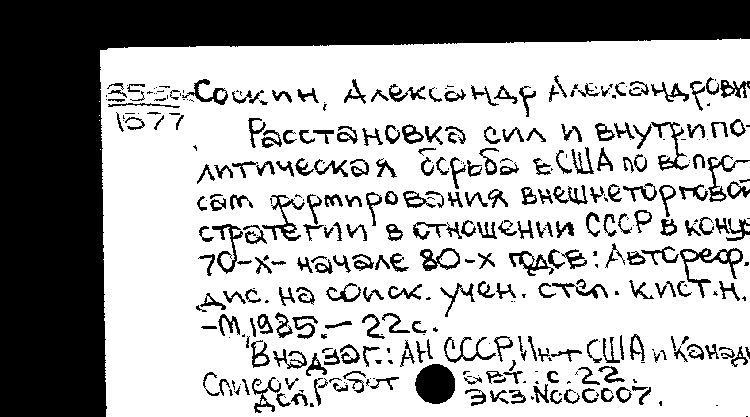 85-5ок Соскин, Александр Александрович
1577
Расстановка сил и внутрипо-
литическая борьба в США по вопро-
сам формирования внешнеторговой
стратегии в отношении СССР в конце
70-х- начале 80-х годов: Автореф.
дис. на соиск. учен. степ. к.ист.н.
-М, 1985.- 22с.
В надзаг.: АН СССР, Ин-т США и Канады
Список работ авт.: с. 22.
дсп. экз. N000007.